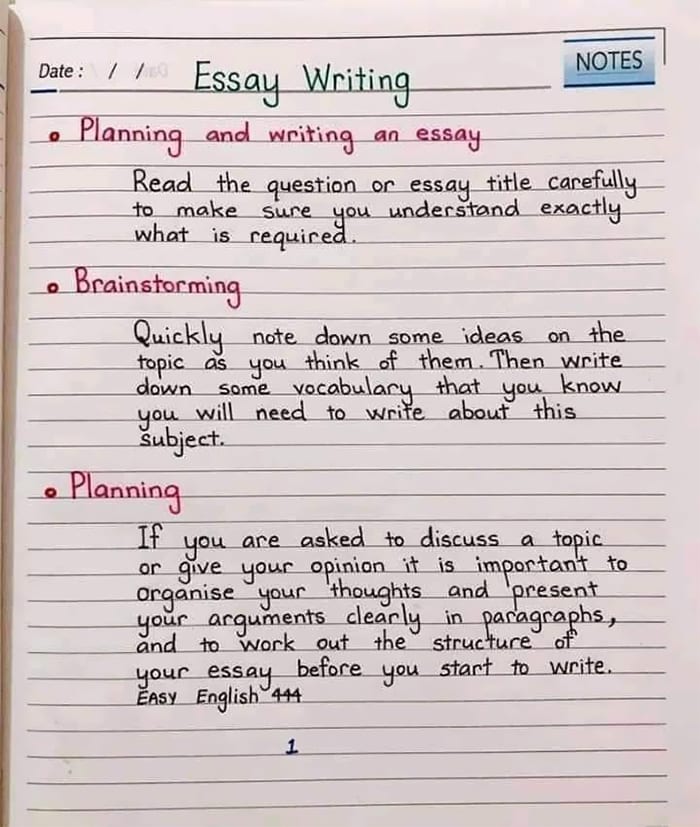 Date : / /
Essay Writing
NOTES
Planning and writing an essay
Read the question or essay title carefully
to make sure you understand exactly
what is required.
Brainstorming
Quickly note down some ideas on the
topic as you think of them. Then write
down some vocabulary that you know
you will need to write about this
subject.
Planning
If you are asked to discuss a topic
or give your opinion it is important to
organise your thoughts and present
your arguments clearly in paragraphs,
and to work out the structure of
your essay before you start to write.
EASY English 444
1